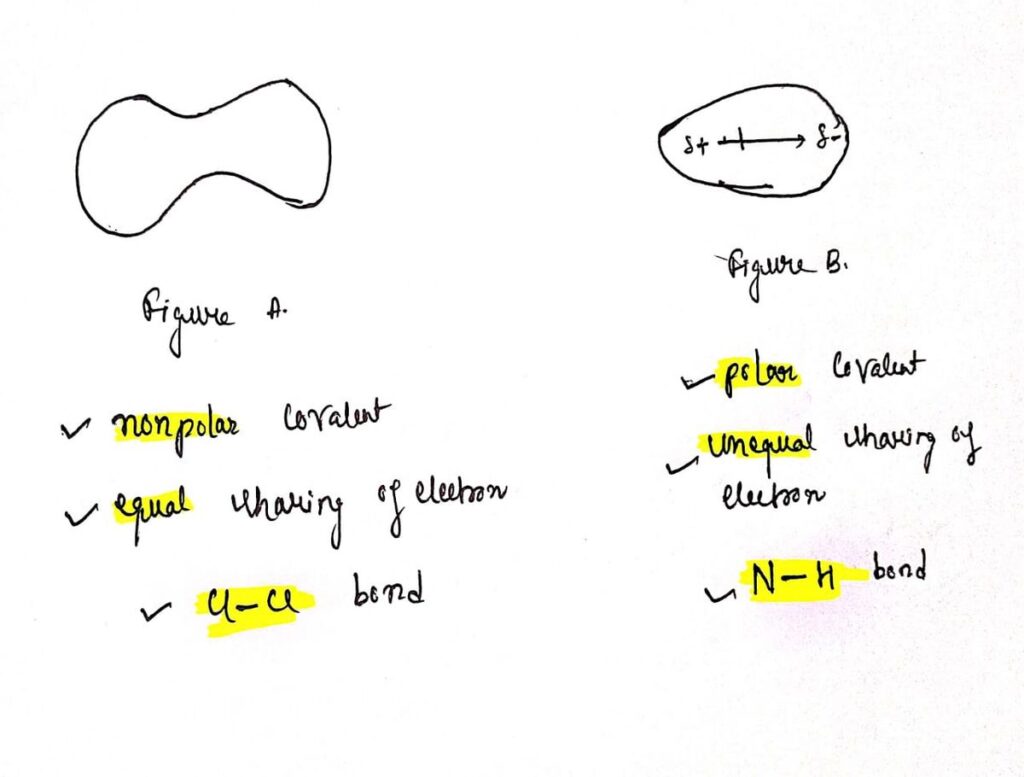 δ+ δ-
Figure A.
Figure B.
nonpolar covalent
equal sharing of electron
Cl-Cl bond
polar covalent
unequal sharing of
electron
N-H bond